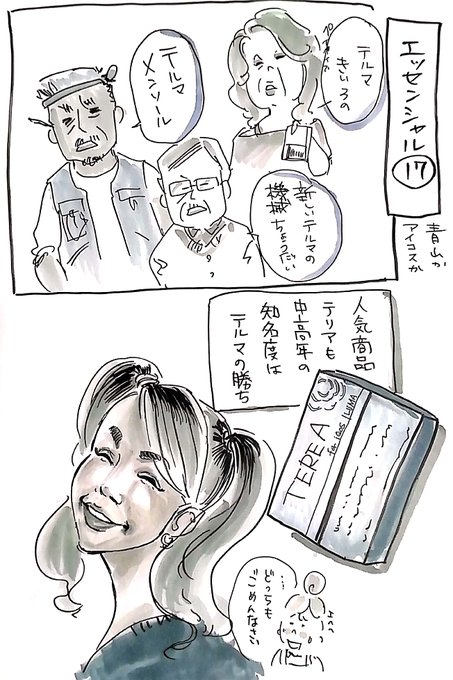 エッセンシャル⑰
青山か
アイコスか
テルマ
きいろの
テルマ
メンソール
新しいテルマの
機械ちょうだい
人気商品
テリアも
中高年の
知名度は
テルマの勝ち
TEREA
for IQOS ILUMA
…
どっちも
ごめんなさい